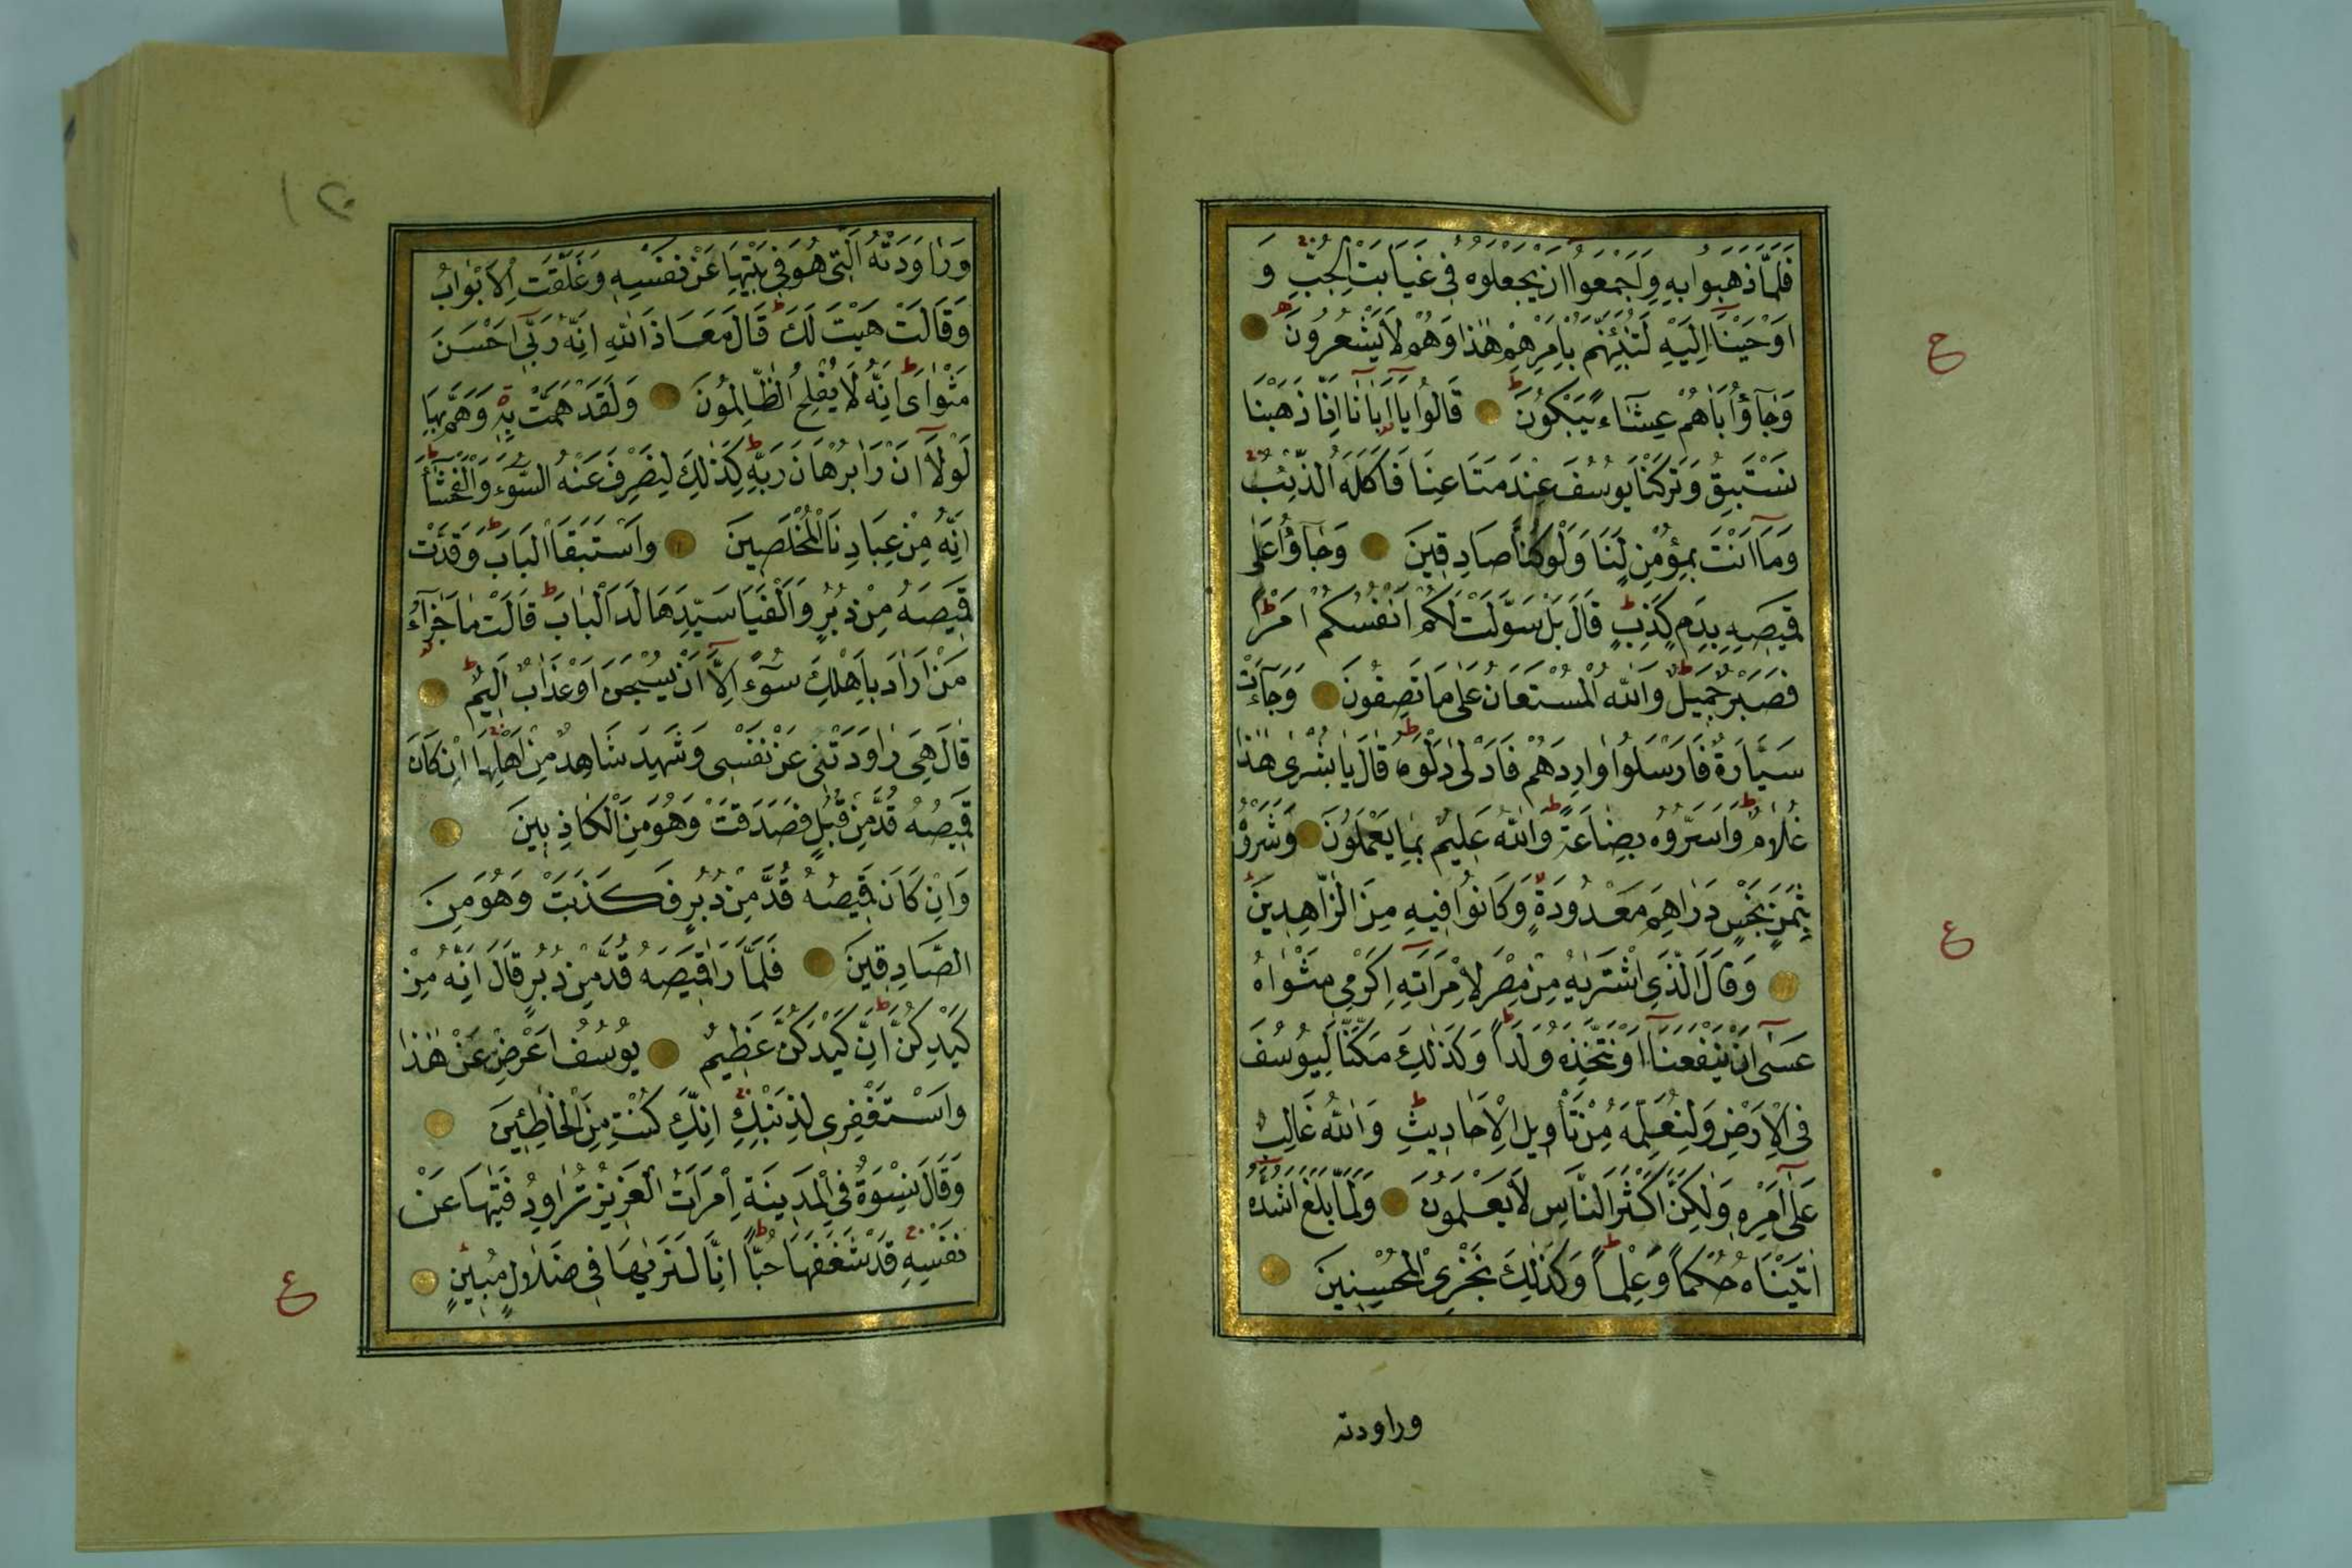 فَلَمَّا ذَهَبُوا بِهِ وَاَجْمَعُوا اَنْ يَجْعَلُوهُ فِى غَيَابَتِ الْجُبِّ وَ
اَوْحَيْنَا اِلَيْهِ لَتُنَبِّئَنَّهُمْ بِاَمْرِهِمْ هٰذَا وَهُمْ لَا يَشْعُرُونَ
وَجَآؤُا اَبَاهُمْ عِشَآءً يَبْكُونَ قَالُوا يَآ اَبَانَا اِنَّا ذَهَبْنَا
نَسْتَبِقُ وَتَرَكْنَا يُوسُفَ عِنْدَ مَتَاعِنَا فَاَكَلَهُ الذِّئْبُ
وَمَآ اَنْتَ بِمُؤْمِنٍ لَنَا وَلَوْ كُنَّا صَادِقِينَ وَجَآؤُ عَلٰى
قَمِيصِهِ بِدَمٍ كَذِبٍ قَالَ بَلْ سَوَّلَتْ لَكُمْ اَنْفُسُكُمْ اَمْرًا
فَصَبْرٌ جَمِيلٌ وَاللّٰهُ الْمُسْتَعَانُ عَلٰى مَا تَصِفُونَ وَجَآءَتْ
سَيَّارَةٌ فَاَرْسَلُوا وَارِدَهُمْ فَاَدْلٰى دَلْوَهُ قَالَ يَا بُشْرٰى هٰذَا
غُلَامٌ وَاَسَرُّوهُ بِضَاعَةً وَاللّٰهُ عَلِيمٌ بِمَا يَعْمَلُونَ وَشَرَوْهُ
بِثَمَنٍ بَخْسٍ دَرَاهِمَ مَعْدُودَةٍ وَكَانُوا فِيهِ مِنَ الزَّاهِدِينَ
وَقَالَ الَّذِى اشْتَرٰيهُ مِنْ مِصْرَ لِامْرَاَتِهِ اَكْرِمِى مَثْوٰاهُ
عَسٰى اَنْ يَنْفَعَنَآ اَوْ نَتَّخِذَهُ وَلَدًا وَكَذٰلِكَ مَكَّنَّا لِيُوسُفَ
فِى الْاَرْضِ وَلِنُعَلِّمَهُ مِنْ تَأْوِيلِ الْاَحَادِيثِ وَاللّٰهُ غَالِبٌ
عَلٰٓى اَمْرِهِ وَلٰكِنَّ اَكْثَرَ النَّاسِ لَا يَعْلَمُونَ وَلَمَّا بَلَغَ اَشُدَّهُ
اٰتَيْنَاهُ حُكْمًا وَعِلْمًا وَكَذٰلِكَ نَجْزِى الْمُحْسِنِينَ
وراودته
ع
ع
١٢٠
وَرَاوَدَتْهُ الَّتِى هُوَ فِى بَيْتِهَا عَنْ نَفْسِهِ وَغَلَّقَتِ الْاَبْوَابَ
وَقَالَتْ هَيْتَ لَكَ قَالَ مَعَاذَ اللّٰهِ اِنَّهُ رَبِّى اَحْسَنَ
مَثْوَاىَ اِنَّهُ لَا يُفْلِحُ الظَّالِمُونَ وَلَقَدْ هَمَّتْ بِهِ وَهَمَّ بِهَا
لَوْلَآ اَنْ رَاٰ بُرْهَانَ رَبِّهِ كَذٰلِكَ لِنَصْرِفَ عَنْهُ السُّوٓءَ وَالْفَحْشَآءَ
اِنَّهُ مِنْ عِبَادِنَا الْمُخْلَصِينَ وَاسْتَبَقَا الْبَابَ وَقَدَّتْ
قَمِيصَهُ مِنْ دُبُرٍ وَاَلْفَيَا سَيِّدَهَا لَدَا الْبَابِ قَالَتْ مَا جَزَآءُ
مَنْ اَرَادَ بِاَهْلِكَ سُوٓءًا اِلَّآ اَنْ يُسْجَنَ اَوْ عَذَابٌ اَلِيمٌ
قَالَ هِىَ رَاوَدَتْنِى عَنْ نَفْسِى وَشَهِدَ شَاهِدٌ مِنْ اَهْلِهَا اِنْ كَانَ
قَمِيصُهُ قُدَّ مِنْ قُبُلٍ فَصَدَقَتْ وَهُوَ مِنَ الْكَاذِبِينَ
وَاِنْ كَانَ قَمِيصُهُ قُدَّ مِنْ دُبُرٍ فَكَذَبَتْ وَهُوَ مِنَ
الصَّادِقِينَ فَلَمَّا رَاٰ قَمِيصَهُ قُدَّ مِنْ دُبُرٍ قَالَ اِنَّهُ مِنْ
كَيْدِكُنَّ اِنَّ كَيْدَكُنَّ عَظِيمٌ يُوسُفُ اَعْرِضْ عَنْ هٰذَا
وَاسْتَغْفِرِى لِذَنْبِكِ اِنَّكِ كُنْتِ مِنَ الْخَاطِئِينَ
وَقَالَ نِسْوَةٌ فِى الْمَدِينَةِ امْرَاَتُ الْعَزِيزِ تُرَاوِدُ فَتٰيهَا عَنْ
نَفْسِهِ قَدْ شَغَفَهَا حُبًّا اِنَّا لَنَرٰيهَا فِى ضَلَالٍ مُبِينٍ
ع